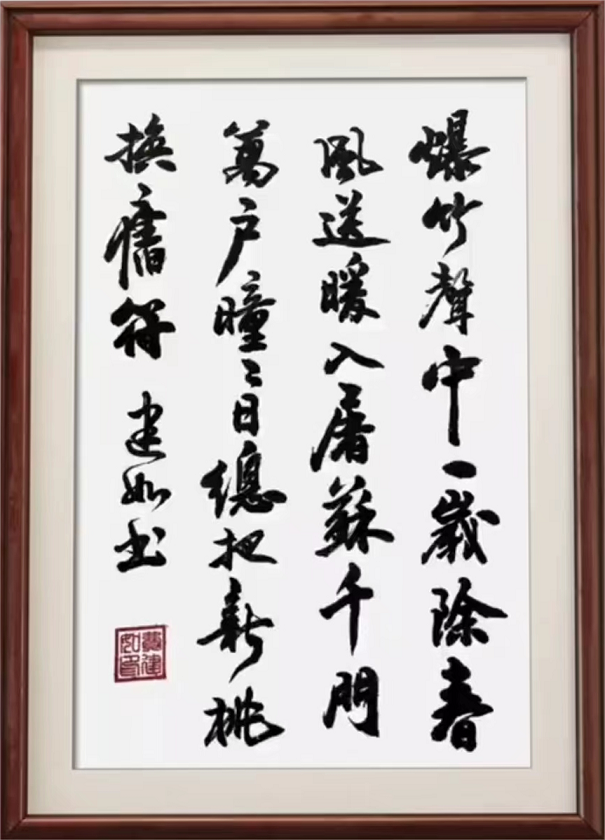 爆竹聲中一歲除春
風送暖入屠蘇千門
萬戶曈々日總把新桃
換舊符 建如書
建
如印